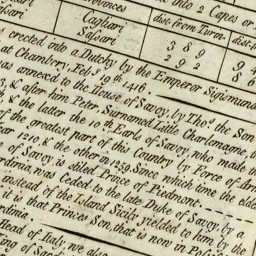 into 2 Capes or
Cagliari
Sassari
dist. from Turin.
3 8 9
2 9 2
erected into a Dutchy by the Emperor Sigismund
at Chambery, Feb. 19th, 1416.
was annexed to the House of Savoy, by Thos. the Son
& after him Peter, Surnamed Little Charlemagne,
& the latter the 10th Earl of Savoy, who made
the greatest part of this Country by Force of Arms
1210, & the other in 1259. Since which time the eldest
of Savoy is stiled Prince of Piedmont.
was Ceded to the late Duke of Savoy, by a
instead of the Island Sicily yielded to him by the
it is that Princes Son, that is now in
Head of Italy, we also